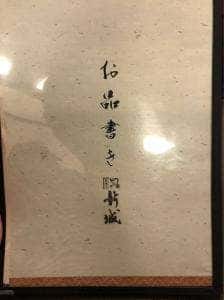 お品書き
新城